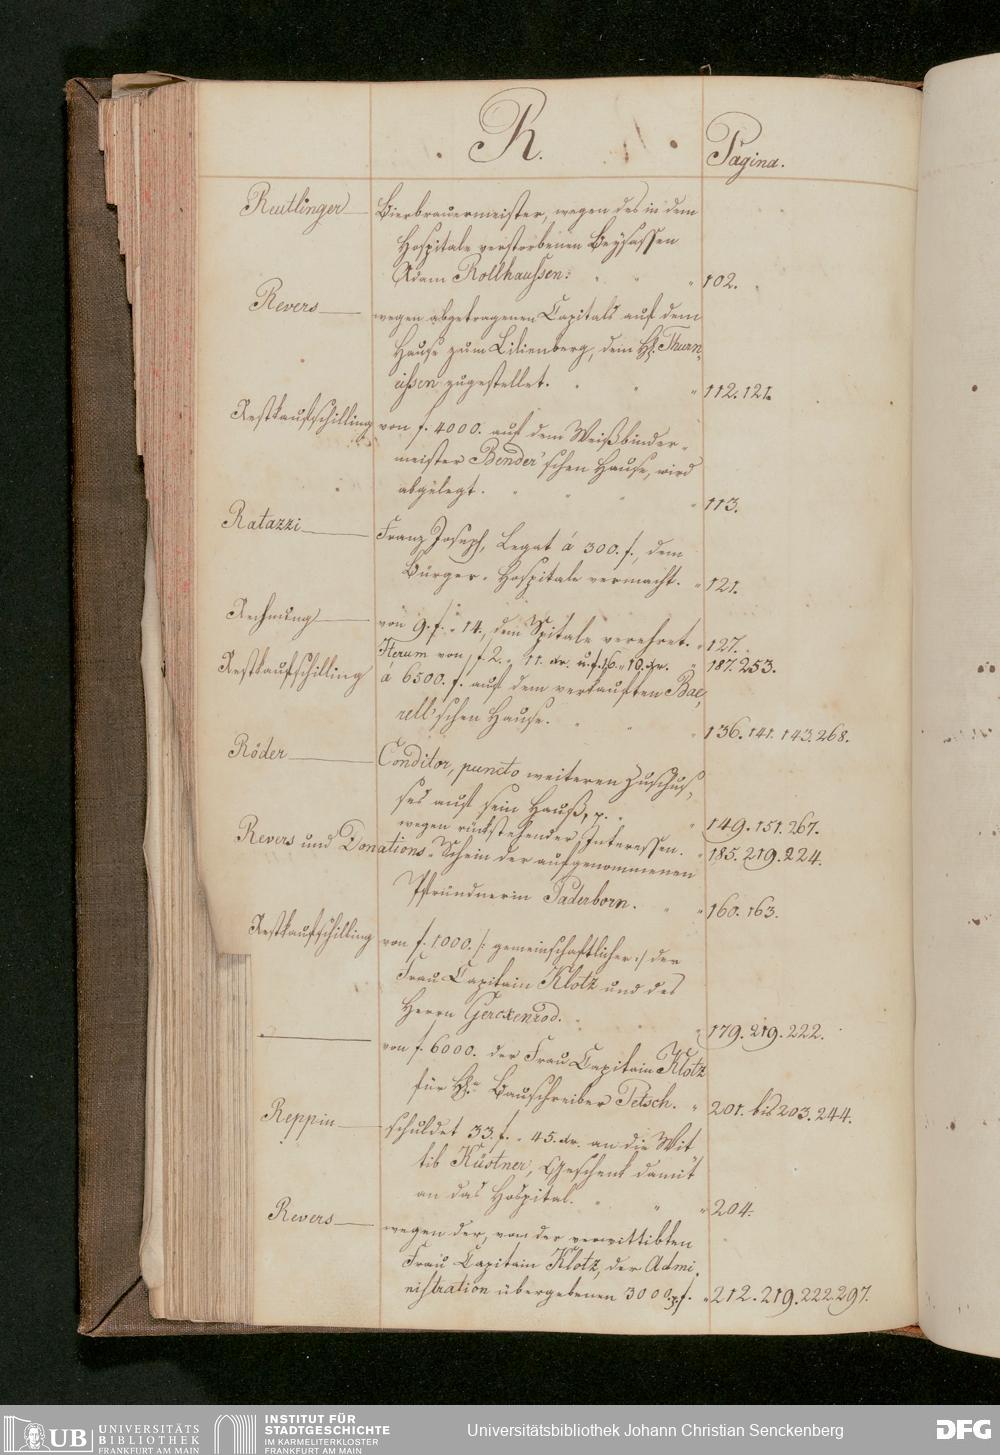 R.
Pagina.
Reutlinger Bierbrauermeister, wegen des in dem
Hospitale verstorbenen Beysassen
Adam Rollhaussen. " 102.
Revers wegen abgetragenen Capitals auf dem
Hause zum Lilienberg, dem H. Thurn,
eissen zugestellet. " 112. 121.
Restkaufschilling von f. 4000. auf dem Weißbinder-
meister Bender'schen Hause, wird
abgelegt. " 113.
Ratazzi Franz Joseph, Legat á 300. f., dem
Bürger-Hospitale vermacht. " 121.
Rechnung von 9. f. " 14., dem Spitale verehret. " 127.
Iterum von f 2. " 11. xr. u. f. 16 " 10. xr. " 187. 253.
Restkaufschilling á 6500. f. auf dem verkauften Bae,
rell'schen Hause. " 136. 141. 143. 268.
Röder Conditor, puncto weiteren Zuschus,
ses auf sein Hauß, p. " 149. 151. 267.
wegen rückstehender Interessen. " 185. 219. 224.
Revers und Donations-Schein der aufgenommenen
Pfründnerin Paderborn. " 160. 163.
Restkaufschilling von f. 1000. /: gemeinschaftlicher :/ der
Frau Capitain Klotz und des
Herrn Gerckenrod. " 179. 219. 222.
von f. 6000. der Frau Capitain Klotz
für H. Bauschreiber Petsch. " 201. bis 203. 244.
Reppin schuldet 33. f. " 45. xr. an die Wit
tib Küstner, Geschenk damit
an das Hospital. " 204.
Revers wegen der, von der verwittibten
Frau Capitain Klotz, der Admi,
nistration übergebenen 3000. f. " 212. 219. 222. 297.
UB UNIVERSITÄTS
BIBLIOTHEK
FRANKFURT AM MAIN
INSTITUT FÜR
STADTGESCHICHTE
IM KARMELITERKLOSTER
FRANKFURT AM MAIN
Universitätsbibliothek Johann Christian Senckenberg
DFG